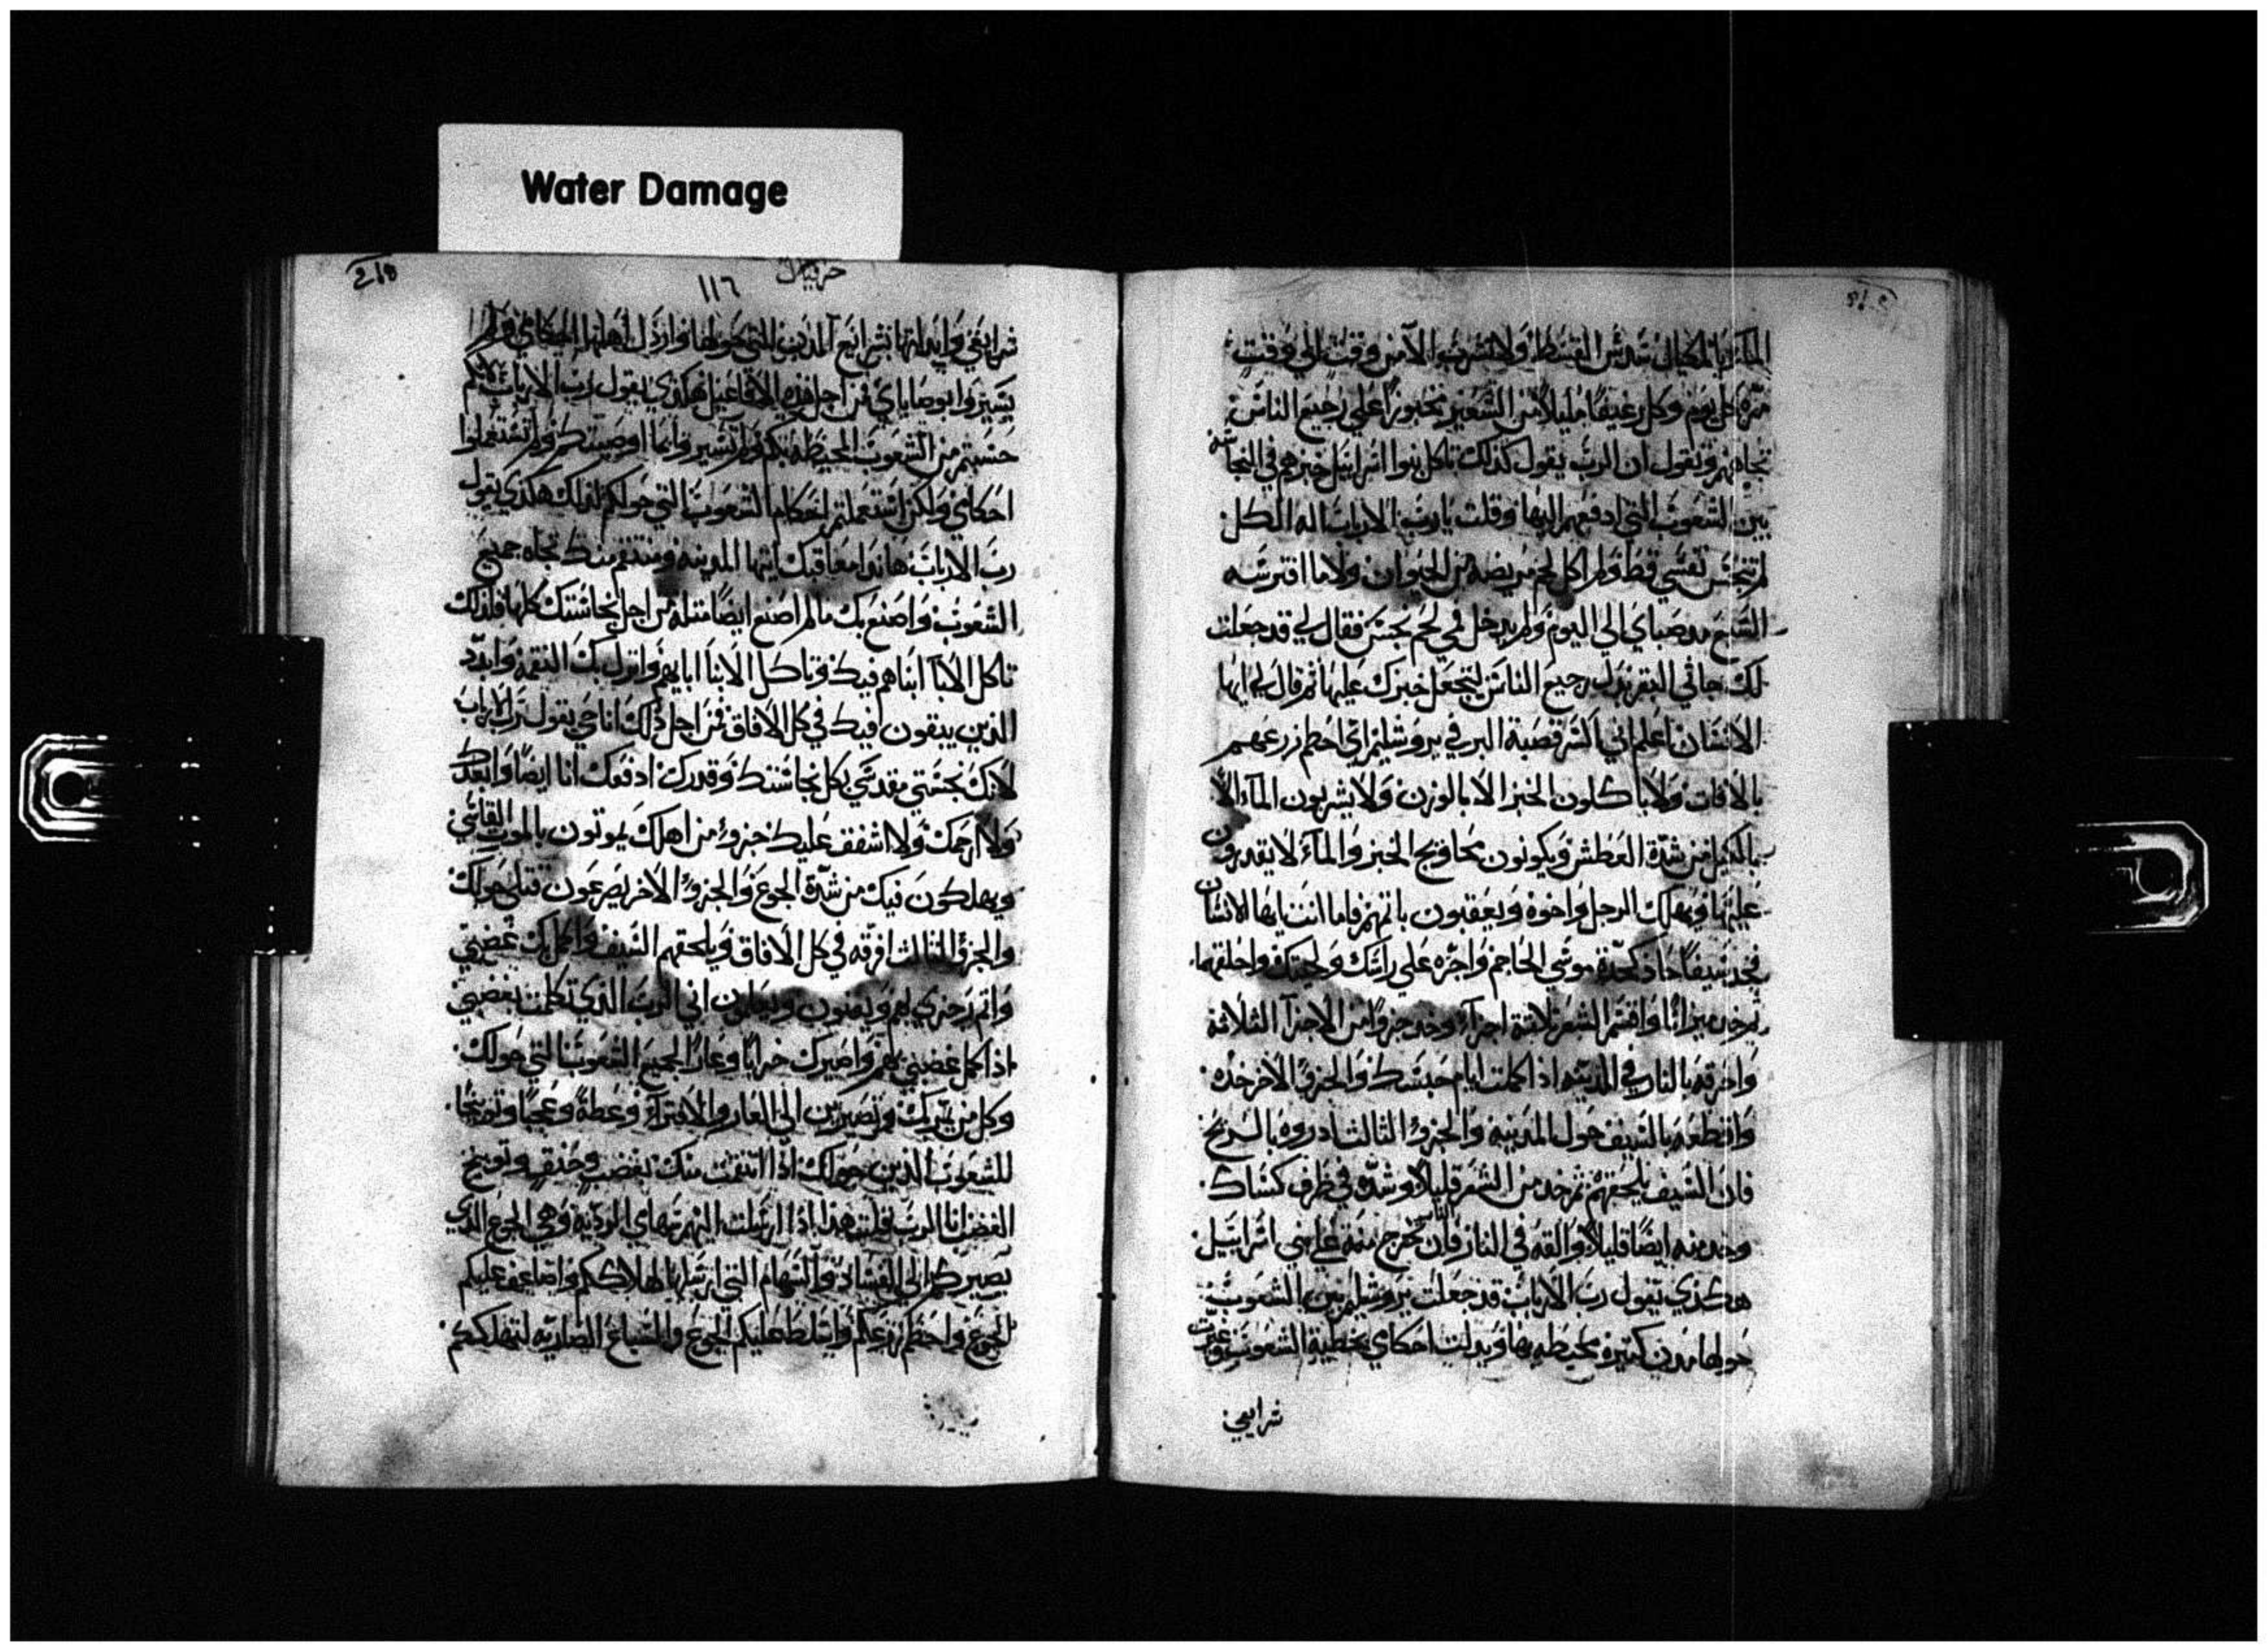 Water Damage
الماء بالمكيال سدس القسط ولا تشرب الا من وقت الى وقت
مره كل يوم وكل رغيفا مليلا من الشعير مخبوزا على رجيع الناس
تجاههم وتقول ان الرب يقول كذلك تاكل بنوا اسرايل خبزهم في النجاسه
بين الشعوب التي ادفعهم اليها وقلت يا رب الارباب اله الكل
لم تنجس نفسي قط ولم اكل لحم مريضة من الحيوان ولا ما افترسه
السبع مد صباي الى اليوم ولم يدخل في لحم نجس فقال لي قد جعلت
لك جاثي البقر بدل رجيع الناس لتجعل خبزك عليها ثم قال لي ايها
الانسان اعلم اني اكسر قصبة البر في يروشليم اي احطم زرعهم
بالافات ولا ياكلون الخبز الا بالوزن ولا يشربون الماء الا
بالكيل من شدة العطش ويكونون محاويج الخبز والماء لا يقدرون
عليها ويهلك الرجل واخوه ويعقبون باثمهم فاما انت ايها الانسان
فخد سيفا حاد كحدة موسي الحاجم واجره على راسك ولحيتك واحلقهما
ثم خد ميزانا واقسم الشعر ثلاثة اجزآء وخد جزوا من الاجزآ الثلاثة
واحرقه بالنار في المدينه اذا كملت ايام حبسك والجزو الاخر خده
واقطعه بالسيف حول المدينه والجزو الثالث ادروه بالريح
فان السيف يلحقهم ثم خد من الشعر قليلا وشده في طرف كساك
وخد منه ايضا قليلا والقه في النار فان النار تخرج منه على بني اسرائيل
هكذي يقول رب الارباب قد جعلت يروشليم بين الشعوب
حولها مدن كثيرة محيطه بها وبدلت احكاي بخطية الشعوب وغيرت
شرايعي
218
حزقيال
١١٦
شرايعي وابدلتها بشرايع المدن التي حولها وارذل اهلها احكاي ولم
يسيروا بوصاياي من اجل هذه الافاعيل هكذي يقول رب الارباب لانكم
حسبتم من الشعوب المحيطه بكم ولم تسيروا بما اوصيتكم ولم تستعملوا
احكاي ولكن استعملتم احكام الشعوب التي حولكم لذلك هكذي يقول
رب الارباب هاندا معاقبك ايتها المدينه ومنتقم منك تجاه جميع
الشعوب واصنع بك ما لم اصنع ايضا مثله من اجل نجاستك كلها فلذلك
تاكل الابآ ابناهم فيك وتاكل الابنا ابايهم وانزل بك النقمة وابدد
الذين يبقون فيك في كل الافاق فمن اجل ذلك انا حي يقول رب الارباب
لانك نجستي مقدسي بكل نجاستك وقدرك ادفعك انا ايضا وابعدك
ولا ارحمك ولا اشفق عليك جزو من اهلك يموتون بالموت القاسي
ويهلكون فيك من شدة الجوع والجزو الاخر يصرعون قتلى حولك
والجزو الثالث افرقه في كل الافاق ويلحقهم السيف واكمل بك غضبي
واتم رجزي بهم ويعلمون اني الرب الذي تكلمت بغضبي
اذا كمل غضبي بهم واصيرك خرابا وعارا لجميع الشعوب التي حولك
وكل من يمر بك وتصيرين الى العار والافتراء وعظة وعجبا وتوبيخا
للشعوب الذين حولك اذا انتقمت منك بغضب وحنق وتوبيخ
الغضب انا الرب قلت هذا اذا ارسلت اليهم سهامي الرديه وهي الجوع الذي
يصيركم الى الفساد والسهام التي ارسلها لهلاككم واضاعف عليكم
الجوع واحطم زرعكم واسلط عليكم الجوع والسباع الضاريه لتهلككم